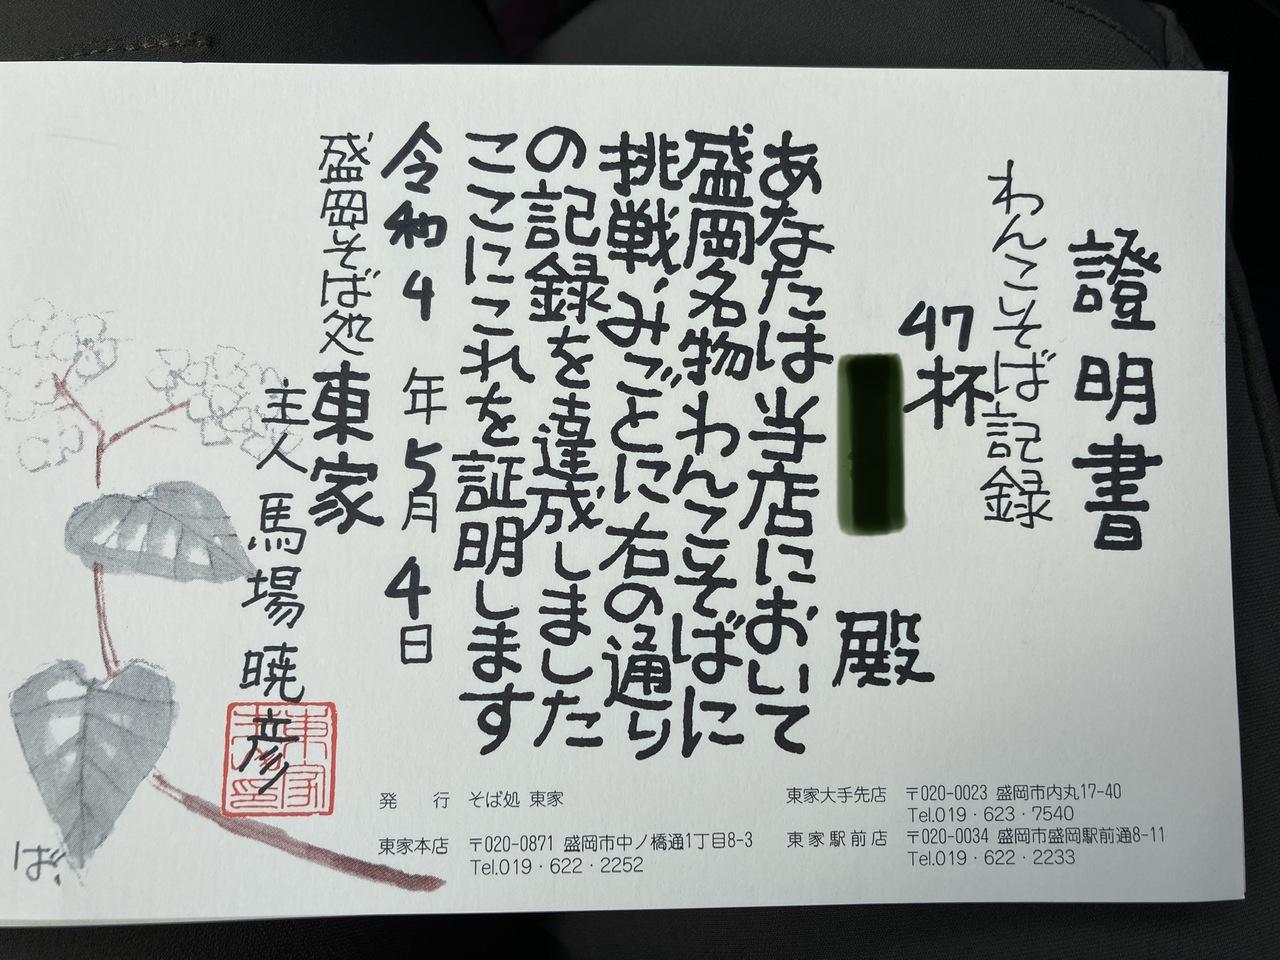 證明書
わんこそば記録
47杯
殿
あなたは当店において
盛岡名物わんこそばに
挑戦、みごとに右の通り
の記録を達成しました
ここにこれを証明します
令和4年5月4日
盛岡そば処 東家
主人 馬場 暁彦
発 行 そば処 東家
東家本店 〒020-0871 盛岡市中ノ橋通1丁目8-3
Tel.019・622・2252
東家大手先店 〒020-0023 盛岡市内丸17-40
Tel.019・623・7540
東家駅前店 〒020-0034 盛岡市盛岡駅前通8-11
Tel.019・622・2233
ば